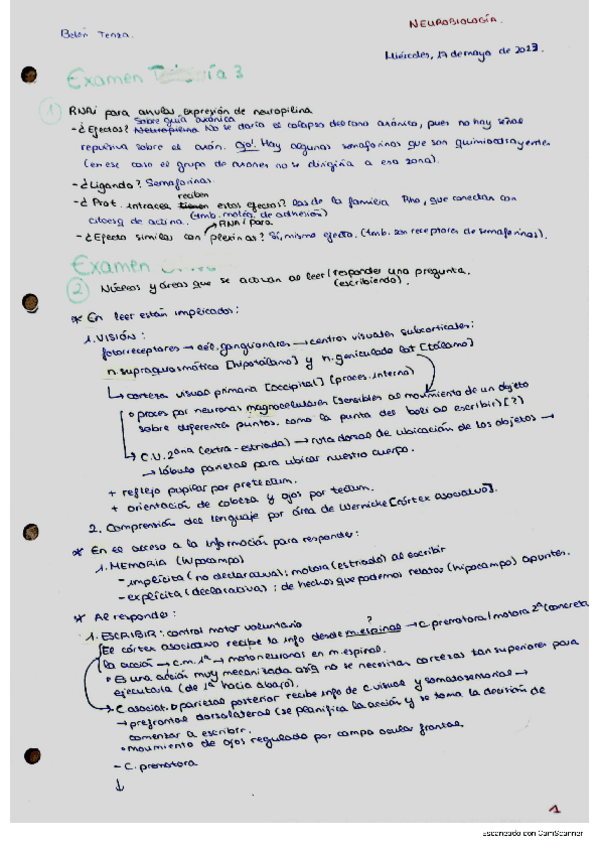 NEUROBIOLOGÍA.
Belén Tenza.
Miércoles, 17 de mayo de 2023.
Examen 3
1 RNAi para anular expresión de neuropilina
Sobre guía axónica
- ¿Efectos? Neuropilina No se daría el colapso del cono axónico, pues no hay señal
repulsiva sobre el axón. Ojo! Hay algunas semaforinas que son quimioatrayentes
(en ese caso el grupo de axones no se dirigiría a esa zona).
- ¿Ligando? Semaforinas.
reciben
- ¿Prot. intracel. tienen estos efectos? Las de la familia Rho, que conectan con
citoesq. de actina. (tmb. moléc. de adhesión)
RNAi para
- ¿Efecto similar con plexinas? Sí, mismo efecto. (tmb. son receptores de semaforinas).
Examen
2 Núcleos y áreas que se activan al leer/responder una pregunta.
(escribiendo).
* En leer están implicados:
1. VISIÓN:
fotorreceptores → cél. ganglionares → centros visuales subcorticales:
n. supraquiasmático [hipotálamo] y n. geniculado lat [tálamo]
↳ corteza visual primaria [occipital] (proces. interno)
proces por neuronas magnocelulares [sensibles al movimiento de un objeto
sobre diferentes puntos, como la punta del boli al escribir) [?]
↳ C.V. 2ªria (extra-estriada) → ruta dorsal de ubicación de los objetos →
→ lóbulo parietal para ubicar nuestro cuerpo.
+ reflejo pupilar por pretectum.
+ orientación de cabeza y ojos por tectum.
2. Comprensión del lenguaje por área de Wernicke [córtex asociativo].
* En el acceso a la información para responder:
1. MEMORIA (hipocampo)
- implícita (no declarativa): motora (estriado) al escribir
- explícita (declarativa): de hechos que podemos relatar (hipocampo) apuntes.
* Al responder:
1. ESCRIBIR: control motor voluntario
?
El córtex asociativo recibe la info desde m. espinal → C. premotora/motora 2ª (concreta
la acción → c.m. 1ª → motoneuronas en m. espinal.
• Es una acción muy mecanizada así q no se necesitan cortezas tan superiores para
ejecutarla (de 1ª hacia abajo).
C asociat. parietal posterior recibe info de C visual y somatosensorial →
→ prefrontal dorsolateral (se planifica la acción y se toma la decisión de
comenzar a escribir.
• Movimiento de ojos regulado por campo ocular frontal.
- C. premotora
↓
1
Escaneado con CamScanner